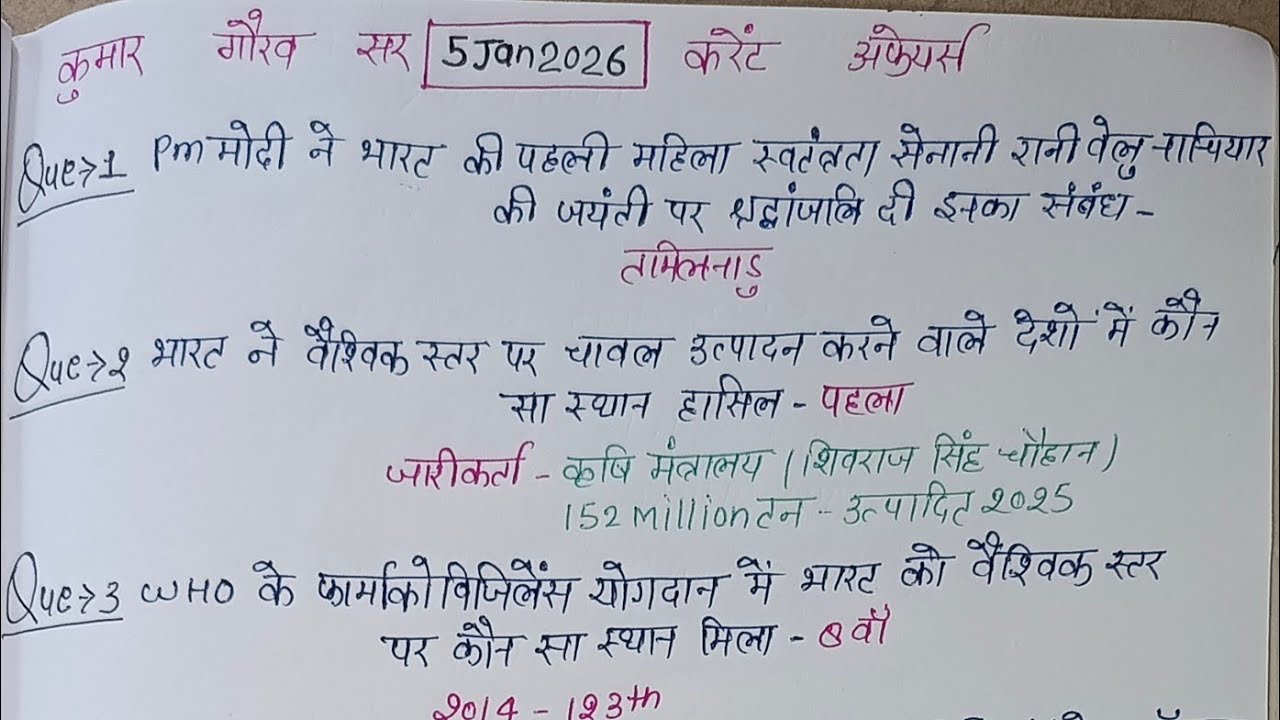 कुमार गौरव सर 5 Jan 2026 करेंट अफेयर्स
Que→1 Pm मोदी ने भारत की पहली महिला स्वतंत्रता सेनानी रानी वेलु नाचियार
की जयंती पर श्रद्धांजलि दी इनका संबंध -
तमिलनाडु
Que→2 भारत ने वैश्विक स्तर पर चावल उत्पादन करने वाले देशों में कौन
सा स्थान हासिल - पहला
जारीकर्ता - कृषि मंत्रालय (शिवराज सिंह चौहान)
152 Million टन - उत्पादित 2025
Que→3 WHO के फार्माकोविजिलेंस योगदान में भारत को वैश्विक स्तर
पर कौन सा स्थान मिला - 8 वाँ
2014 - 123th